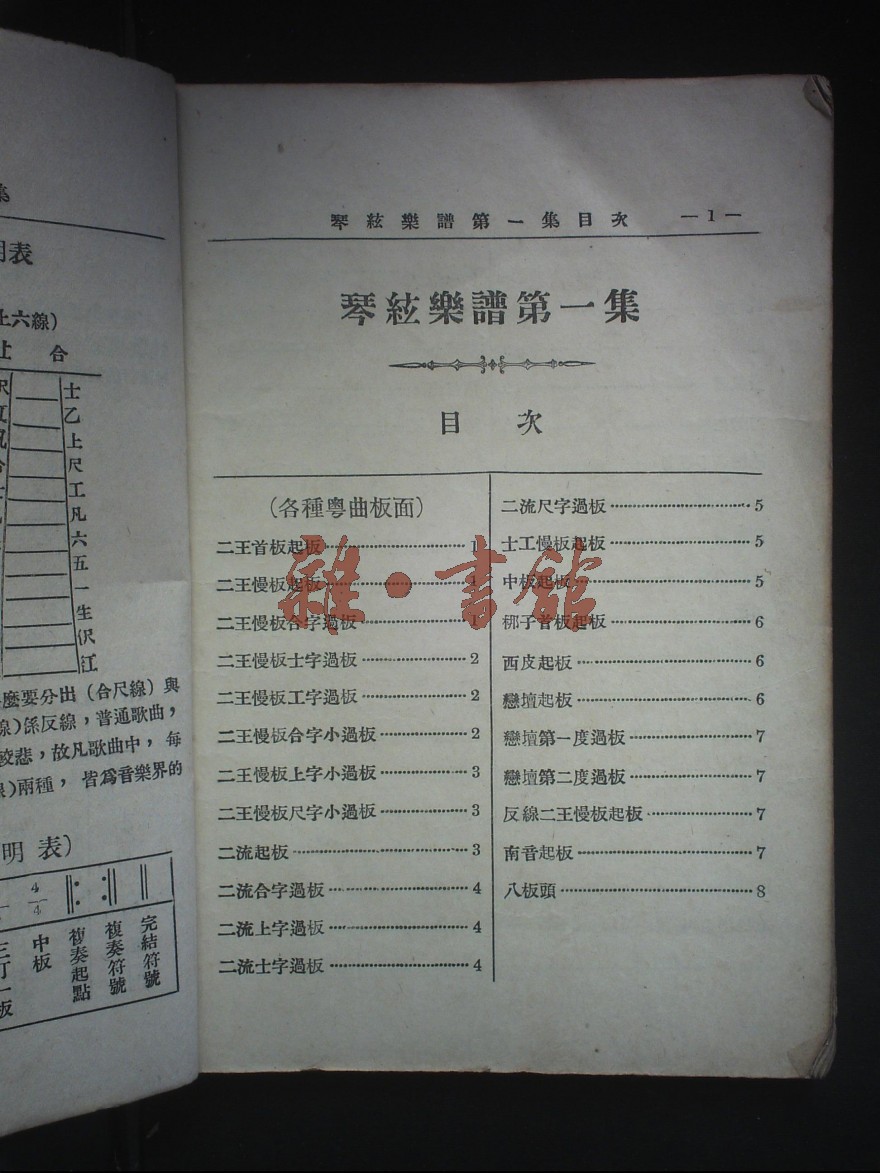 集
明表
上六線)
上 合
士
乙
上
尺
工
凡
六
五
一
生
伬
仜
麼要分出(合尺線)與
線)係反線,普通歌曲,
較悲,故凡歌曲中,每
線)兩種,皆爲音樂界的
明表)
4/4
中板
複奏起點
複奏符號
完結符號
琴絃樂譜第一集目次 —1—
琴絃樂譜第一集
目 次
(各種粵曲板面)
二王首板起板 1
二王慢板起板 1
二王慢板合字過板 1
二王慢板士字過板 2
二王慢板工字過板 2
二王慢板合字小過板 2
二王慢板上字小過板 3
二王慢板尺字小過板 3
二流起板 3
二流合字過板 4
二流上字過板 4
二流士字過板 4
二流尺字過板 5
士工慢板起板 5
中板起板 5
梆子首板起板 6
西皮起板 6
戀壇起板 6
戀壇第一度過板 7
戀壇第二度過板 7
反線二王慢板起板 7
南音起板 7
八板頭 8
雜·書館